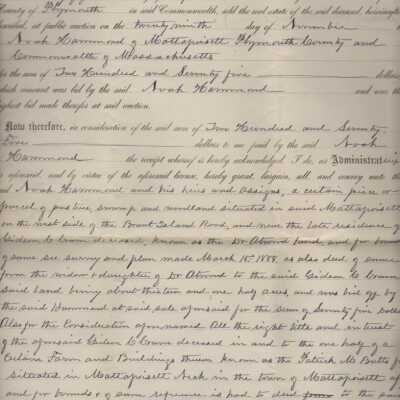 County of Plymouth in said Commonwealth, sold the real estate of the said deceased, hereinafter
described, at public auction on the twenty ninth day of November
Noah Hammond of Mattapoisett Plymouth County and
Commonwealth of Massachusetts
for the sum of Two Hundred and Seventy five dollars
which amount was bid by the said Noah Hammond and was the
highest bid made therefor at said auction.
Now therefore, in consideration of the said sum of Two Hundred and Seventy
Five dollars to me paid by the said Noah
Hammond the receipt whereof is hereby acknowledged I do, as Administratrix
as aforesaid, and by virtue of the aforesaid license, hereby grant, bargain, sell, and convey unto the
said Noah Hammond and his heirs and assigns, a certain piece or
parcel of pasture, swamp and woodland situated in said Mattapoisett
on the west side of the Brant Island Road, and near the late residence of
Gideon C Cowen deceased, known as the Dr Atwood land, and for bounds
of same see survey and plan made March 1888. as also deed of same
from the widow & daughter of Dr Atwood to the said Gideon C Cowen
said land being about thirteen and one half acres, and was bid off by
the said Hammond at said sale aforesaid for the sum of Seventy five dollars
Also for the Consideration afore named All the right title and interest
of the aforesaid Gideon C Cowen deceased in and to the one half of a
Certain Farm and Buildings thereon known as the Patrick M. Butts
situated in Mattapoisett Neck in the town of Mattapoisett
and for bounds of same reference is had to deed from to the